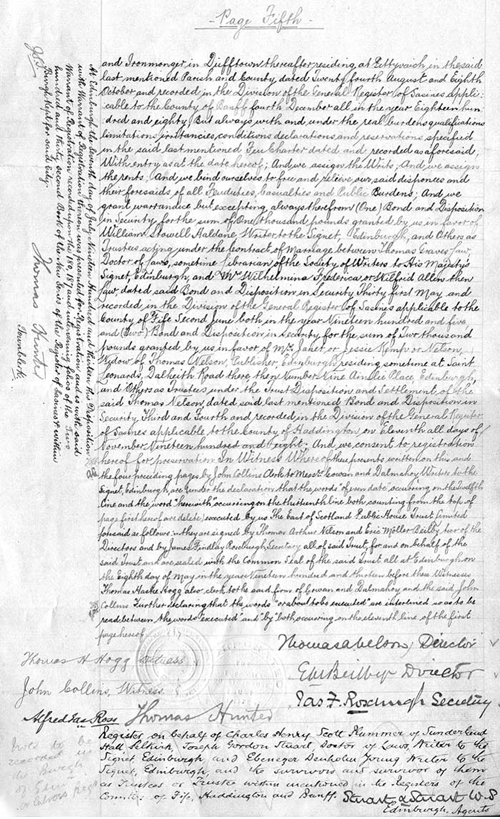 - Page Fifth -
and Ironmonger in Dufftown thereafter residing at Pittyvaich in the said
last mentioned Parish and County, dated Twenty fourth August and Eighth
October and recorded in the Division of the General Register of Sasines appli-
cable to the County of Banff fourth December all in the year Eighteen hun-
dred and eighty; But always with and under the real burdens qualifications
limitations irritancies, conditions declarations and reservations specified
in the said last mentioned Feu Charter dated and recorded as aforesaid
With entry as at the date hereof; And we assign the Writs; And we assign
the rents; And we bind ourselves to free and relieve our said disponees and
their foresaids of all Feuduties, Casualties and Public Burdens; And we
grant warrandice but excepting always therefrom (One) Bond and Disposition
in Security for the sum of One thousand pounds granted by us in favor of
William Stowell Haldane, Writer to the Signet Edinburgh, and Others as
Trustees acting under the Contract of Marriage between Thomas Graves Law,
Doctor of laws, sometime Librarian of the Society of Writers to His Majesty's
Signet, Edinburgh, and Mrs Wilhelmina Frederica or Wilfrid Allen then
Law dated said Bond and Disposition in Security Thirty first May and
recorded in the Division of the General Register of Sasines applicable to the
County of Fife Second June both in the year Nineteen hundred and five
and (Two) Bond and Disposition in Security for the sum of Two thousand
pounds granted by us in favor of Mrs Janet or Jessie Kemp or Nelson,
Widow of Thomas Nelson, Publisher, Edinburgh, residing sometime at Saint
Leonards, Dalkeith Road there, then Number Nine Ainslie Place, Edinburgh
and Others as Trustees under the Trust Disposition and Settlement of the
said Thomas Nelson, dated said last mentioned Bond and Disposition in
Security Third and Fourth and recorded in the Division of the General Register
of Sasines applicable to the County of Haddington on Eleventh all days of
November Nineteen hundred and eight; And we consent to registration
hereof for preservation In Witness Whereof these presents written on this and
the four preceding pages by John Collins Clerk to Messrs Cowan and Dalmahoy Writers to the
Signet, Edinburgh are (under the declaration that the words "of even date" occurring on the twelfth
line and the word "herewith" occurring on the thirteenth line both counting from the top of
page first hereof are delete) executed by us The East of Scotland Public House Trust Limited
foresaid as follows: they are signed by Thomas Arthur Nelson and Eric Möller Beilby two of the
Directors and by James Findlay Roxburgh Secretary all of said Trust, for and on behalf of the
said Trust and are sealed with the Common Seal of the said Trust all at Edinburgh on
the Eighth day of May in the year Nineteen hundred and thirteen before these Witnesses
Thomas Hastie Hogg also clerk to the said firm of Cowan and Dalmahoy and the said John
Collins Further declaring that the words "or about to be executed" are interlined so as to be
read between the words "executed" and "by" both occurring on the eleventh line of the first
page hereof
Thomas A Nelson, Director
E M Beilby Director
Jas F. Roxburgh Secretary
Thomas H Hogg Witness
John Collins, Witness
Alfred Jas Ross Thomas Hunter
Register on behalf of Charles Henry Scott Plummer of Sunderland
Hall Selkirk, Joseph Gordon Stuart, Doctor of Laws, Writer to the
Signet Edinburgh and Ebenezer Denholm Young Writer to the
Signet, Edinburgh, and the survivors and survivor of them
as Trustees or Trustee within mentioned in the Registers of the
Counties of Fife, Haddington and Banff. Stuart & Stuart W.S
Edinburgh, Agents
At Edinburgh the Seventh day of July Nineteen Hundred and thirteen this Disposition
with Warrant of Registration thereon was presented for Registration and is with said
Thomas Hunter